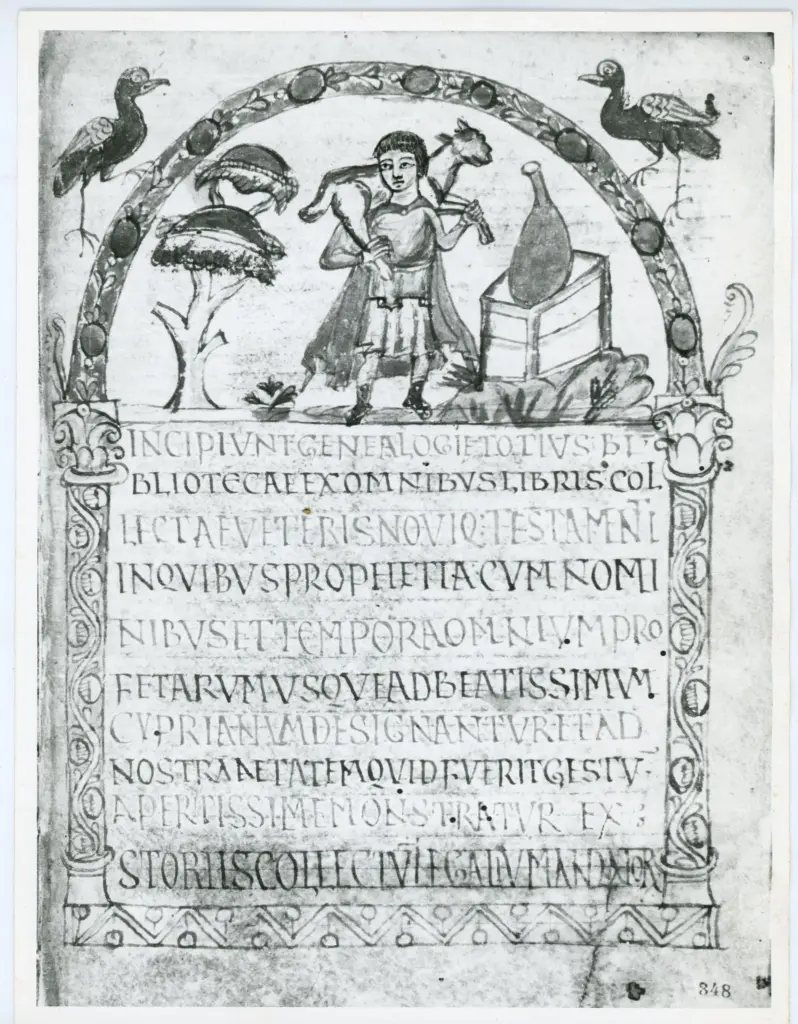 INCIPIUNT GENEALOGIE TOTIUS BI
BLIOTECAE EX OMNIBUS LIBRIS COL
LECTAE VETERIS NOVIQ: TESTAMENTI
IN QUIBUS PROPHETIA CUM NOMI
NIBUS ET TEMPORA OMNIUM PRO
FETARUM USQUE AD BEATISSIMUM
CYPRIANUM DESIGNANTUR ET AD
NOSTRA AETATEM QUID FUERIT GESTU
APERTISSIME MONSTRATUR EX
STORIIS COLLECTU LEGALIUM MANDATOR
348